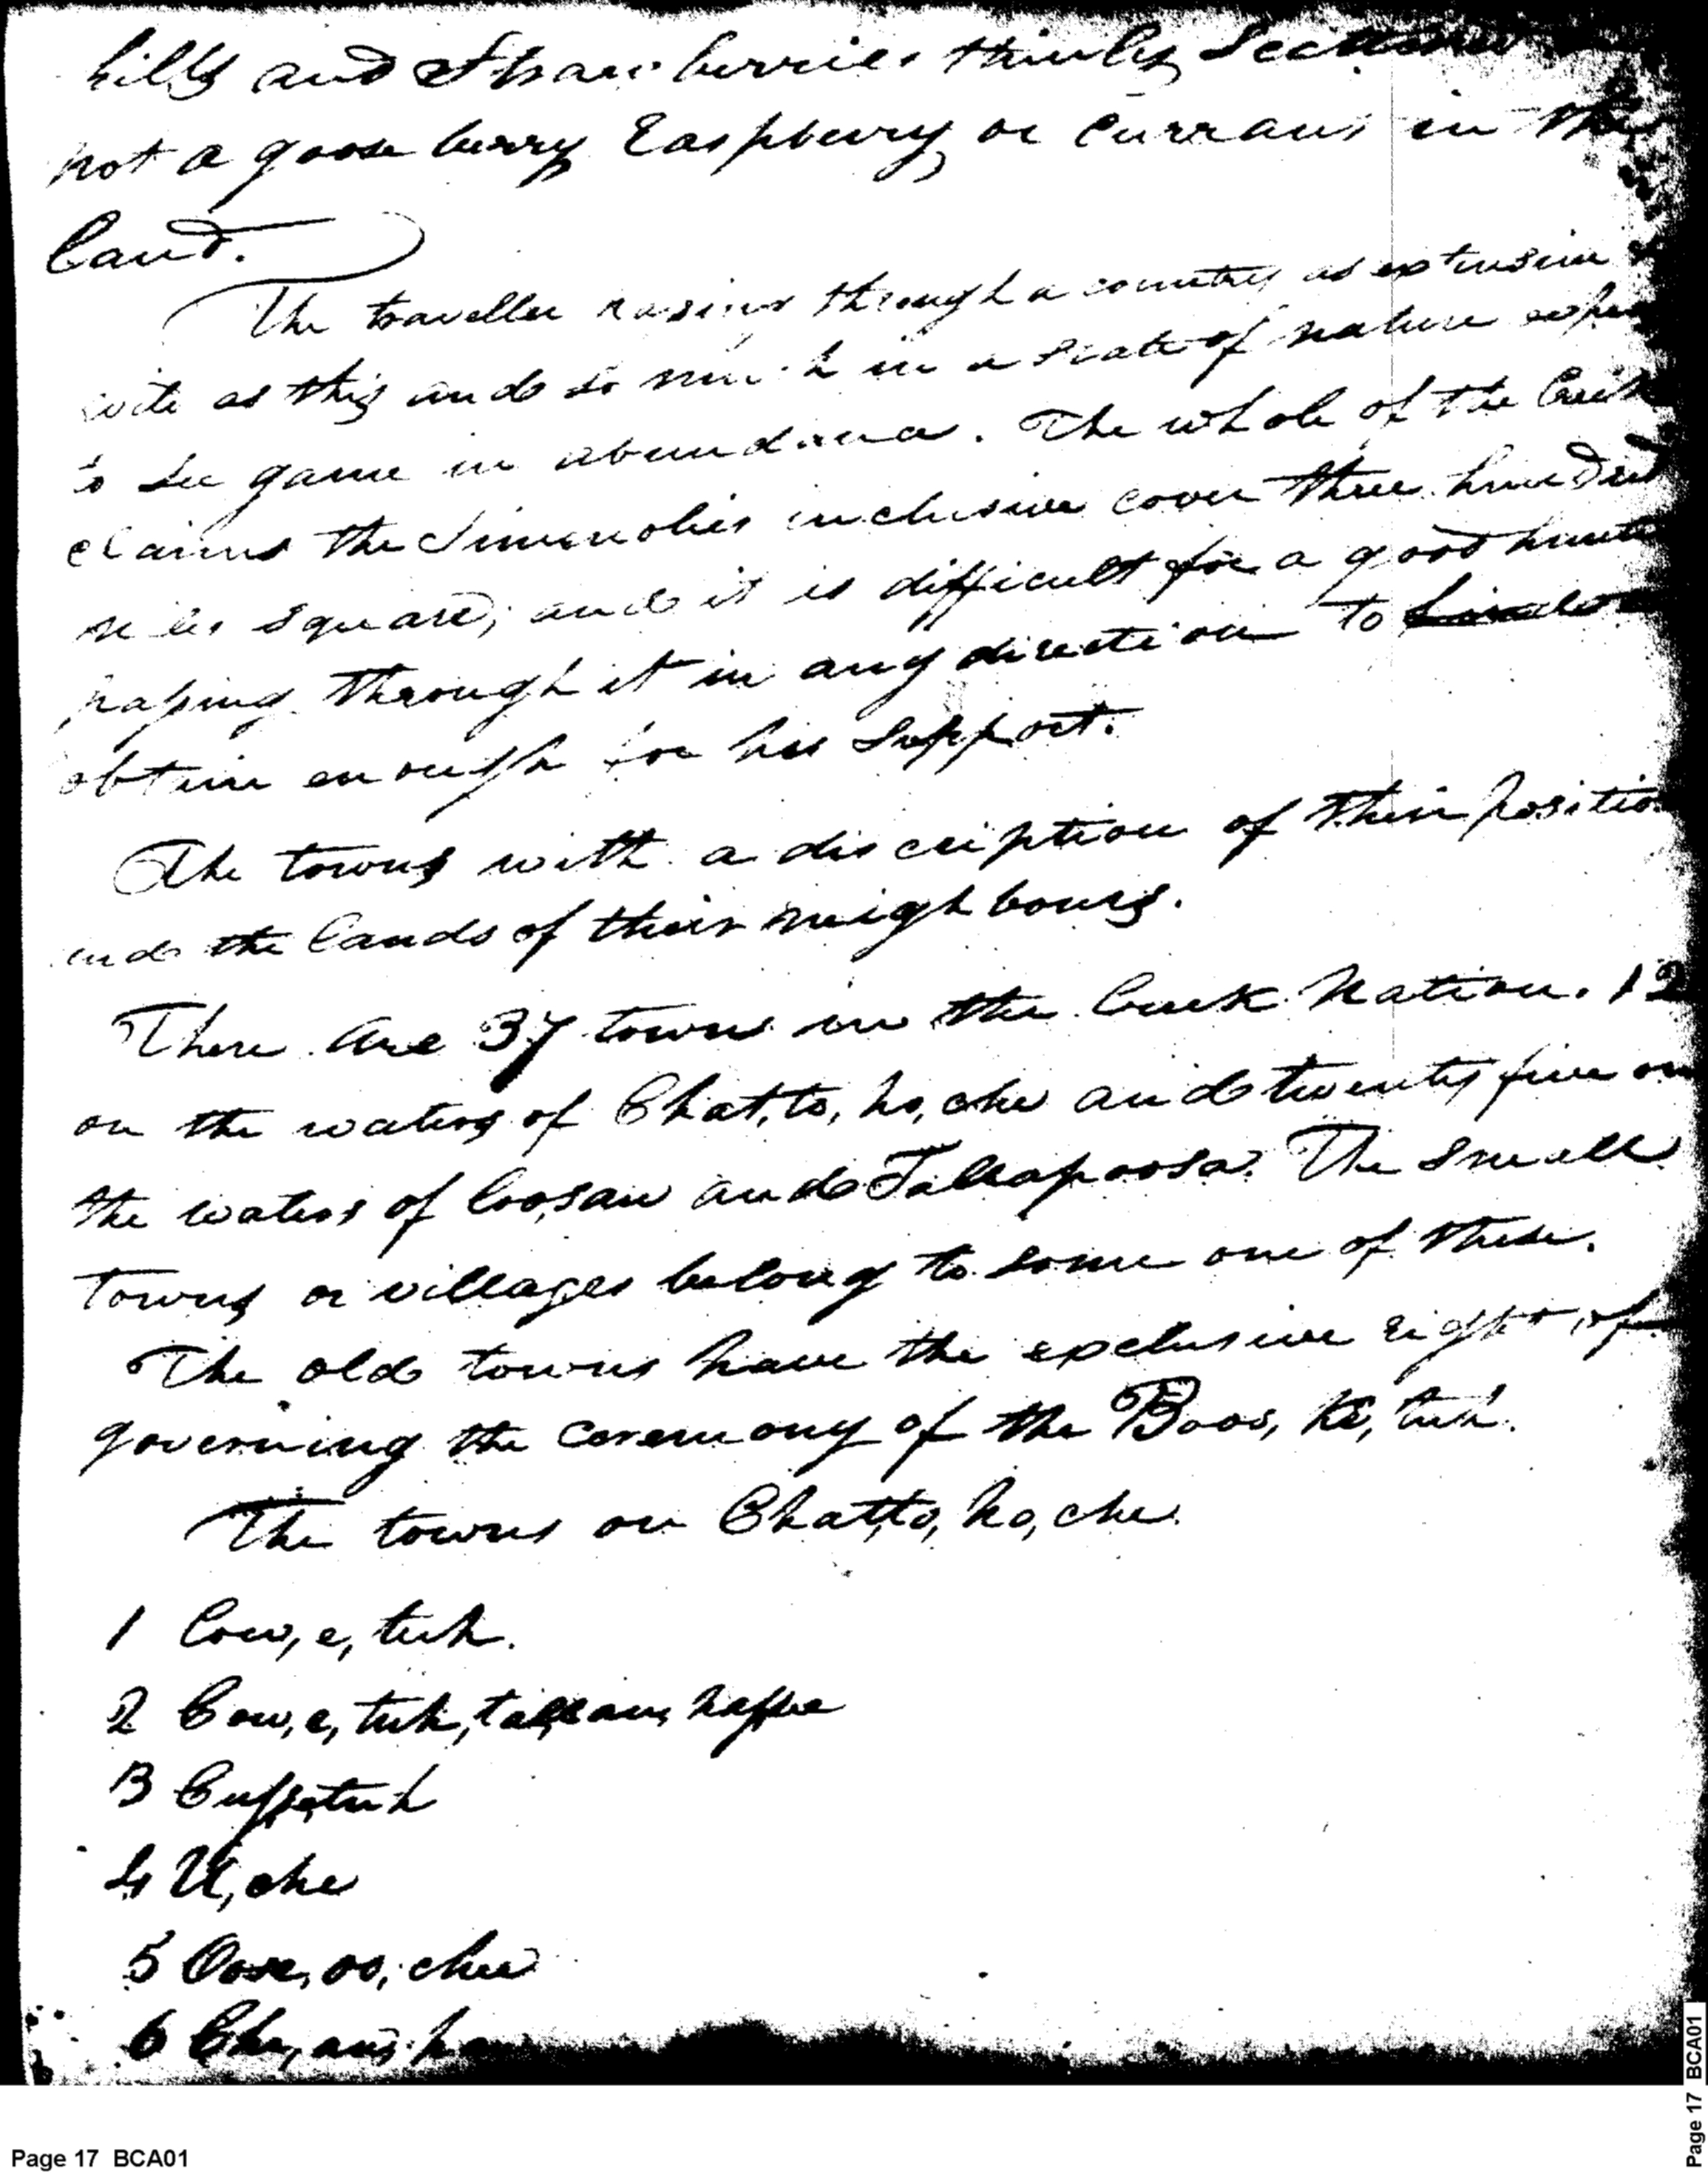 hills and Straw berries thinly Scattered
not a goose berry Raspberry or Currans in the
Land.
The traveller passing through a country as extensive
as this and so much in a State of nature expec
to see game in abundance. The whole of the Creek
claims the Simenolies inclusive cover three hundred
miles square; and it is difficult for a good hunte
passing through it in any direction to
obtain enough for his Support.
The towns with a discription of their positio
and the lands of their neighbours.
There are 37 towns in the Creek Nation. 12
on the waters of Chat,to,ho,che and twenty five on
the waters of Coo,sau and Tallapoosa. The small
towns or villages belong to some one of these.
The old towns have the exclusive right of
governing the ceremony of the Boos,ke,tuh.
The towns on Chat,to,ho,che.
1 Cow,e,tuh.
2 Cow,e,tuh,tal,lau,hassee
3 Cusse,tuh
4 U,che
5 Oose,oo,chee
6 Che,au,ha
Page 17 BCA01
Page 17 BCA01